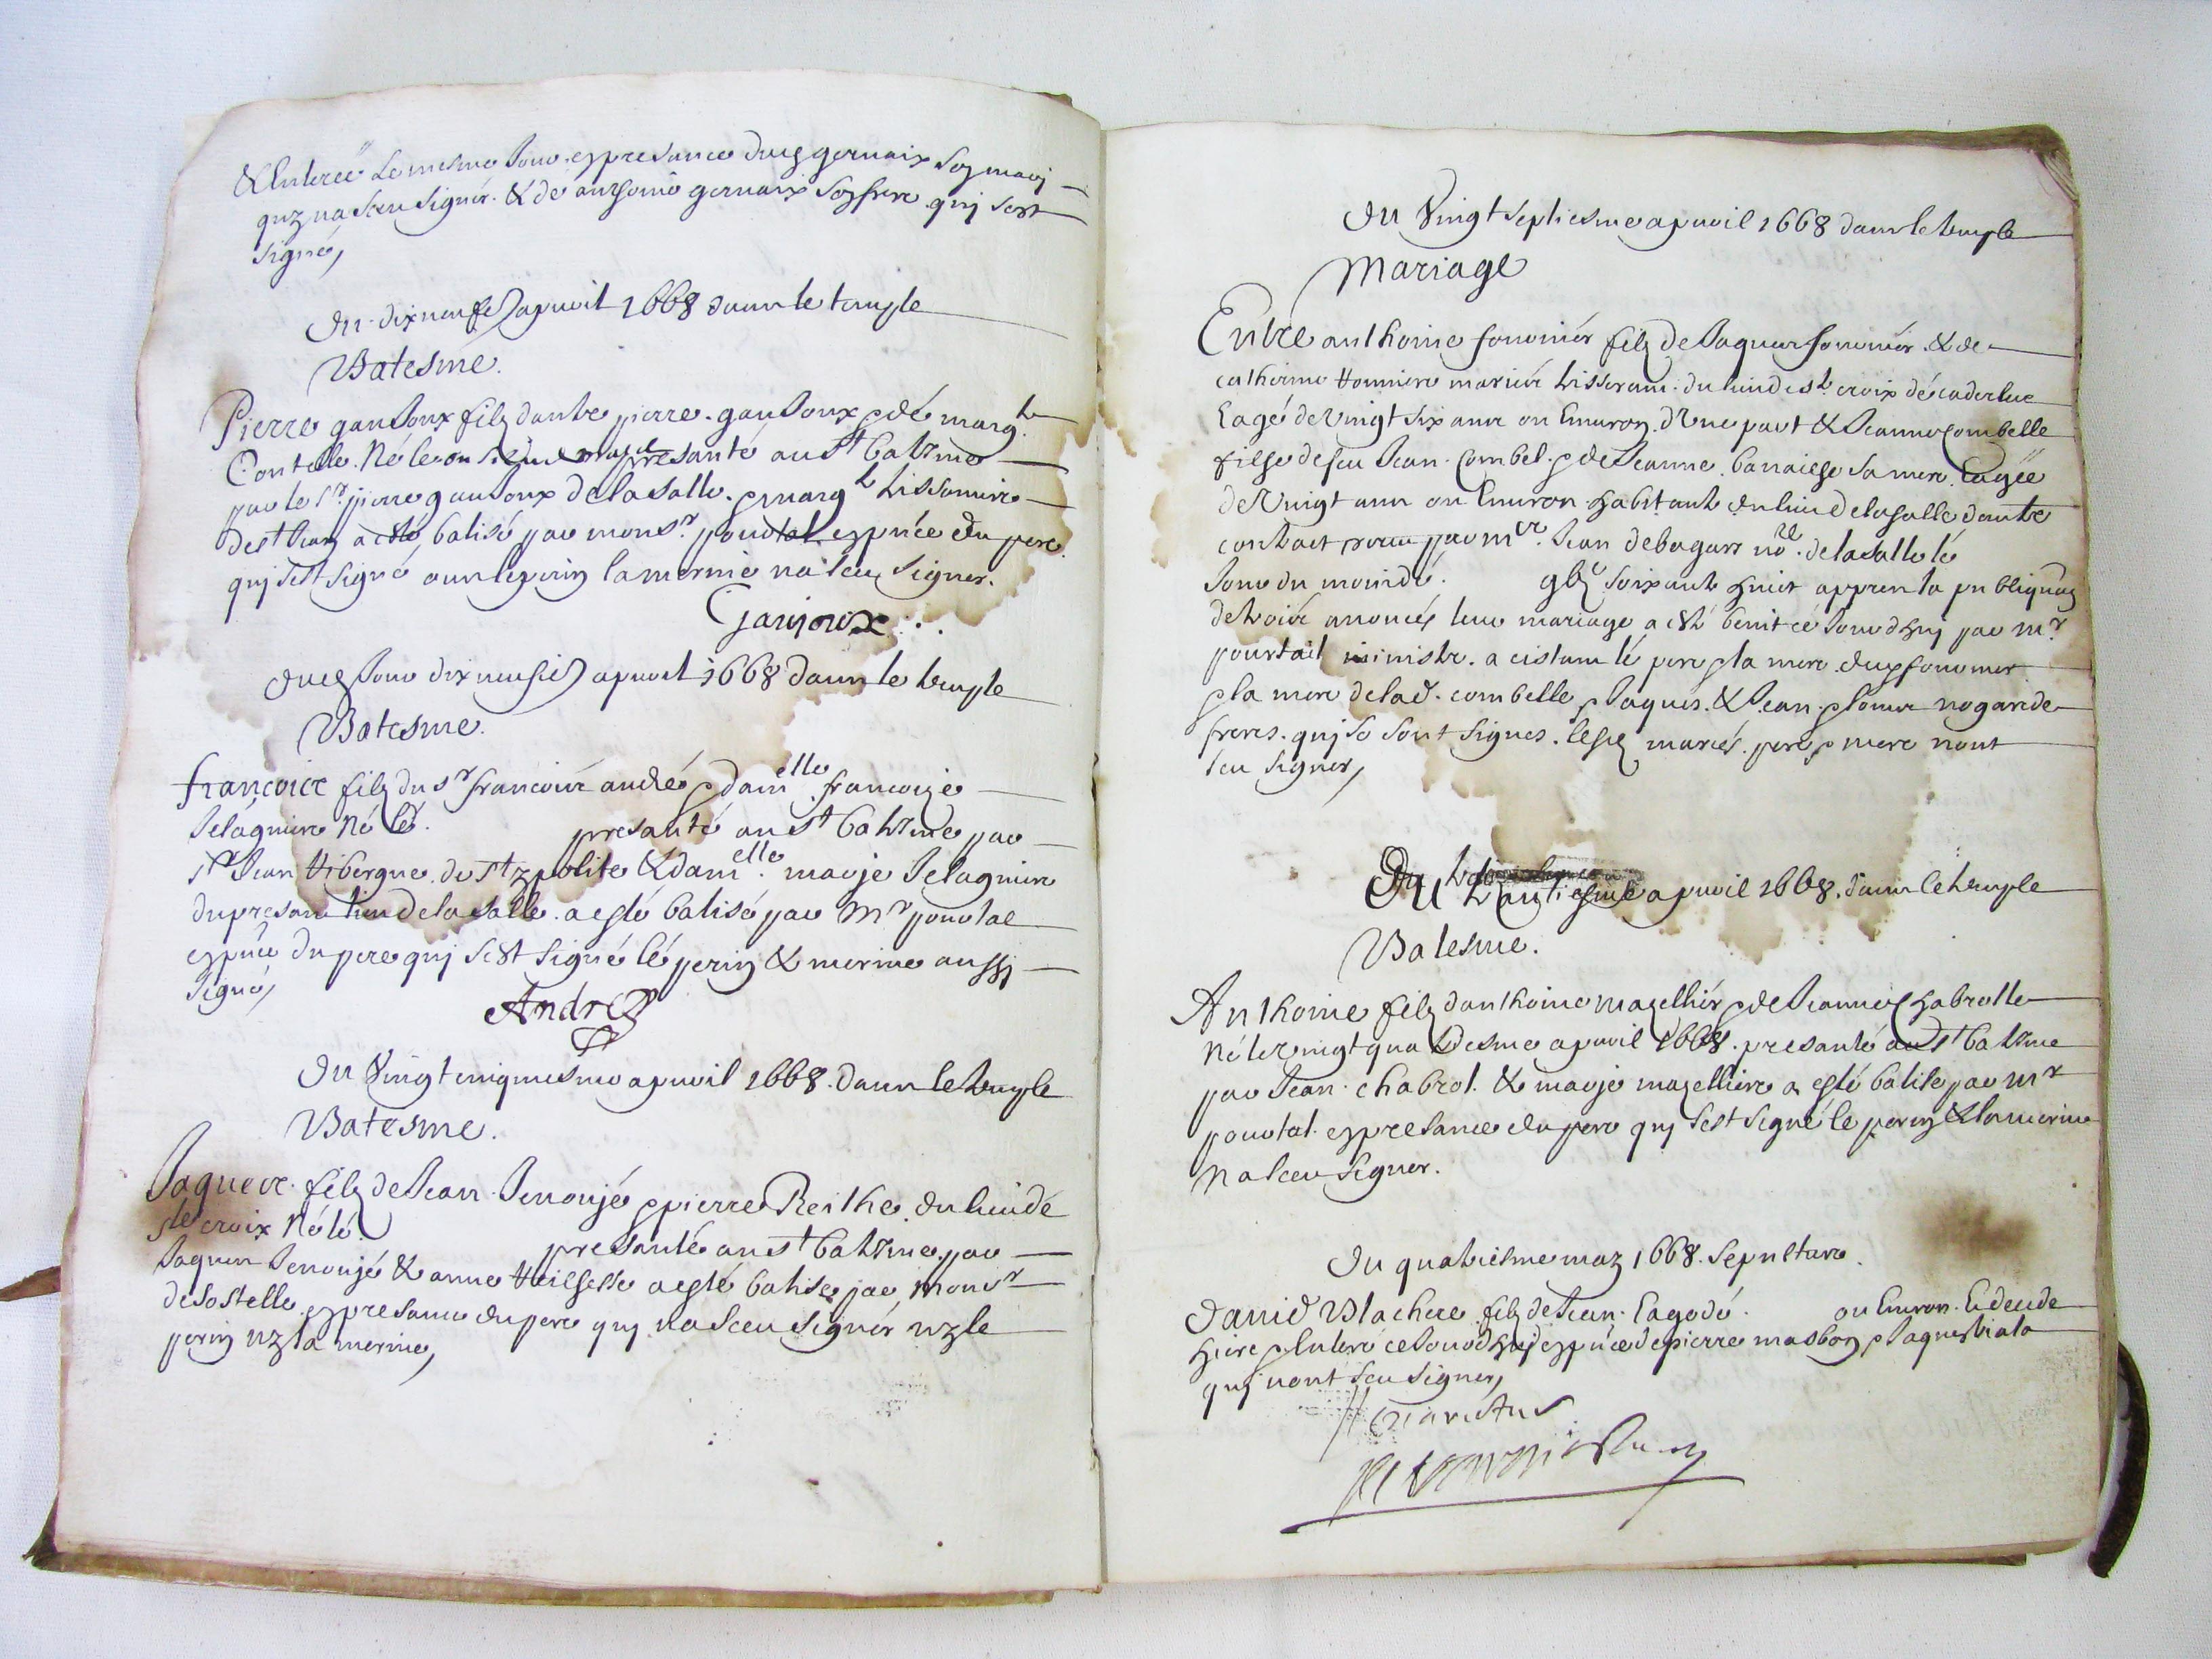 & Enteree le mesme Jour en presance dud gervaix son mary
quy na sceu signer. & de anthoine gervaix son frere quj sest
signé,
Du dix neufie apvril 1668 dans le temple
Batesme.
Pierre gaujoux filz dautre pierre gaujoux & de marg.te
Contelle. Né le presanté au St batzme
par le Sr. pierre gaujoux de lasalle. & marg.te
de St Jean a esté batisé par monsr. pourtal en pnce du pere
quj sest signé avec le perin la merine na sceu signer.
Gaujoux
Dud Jour dix neufie apvril 1668 dans le temple
Batesme.
francoice filz du Sr francois andré & dam.elle francoize
Né le. presanté au St batzme par
Sr Jean Vibergue de St ypolite & dam.elle marje
du presant lieu de lasalle. a esté batisé par Mr pourtal
en pnce du pere quj sest signé le perin & merine aussj
signé,
André
Du Vingt cinquiesme apvril 1668. dans le temple
Batesme.
Jaques. filz de Jean & pierre Reilhe. du lieu de
Ste croix Né le. presanté au St batzme. par
Jaques & anne a esté batisé par Monsr
en presance du pere quj na sceu signer ny le
perin ny la merine,
Du Vingt septiesme apvril 1668 dans le temple
Mariage
Entre anthoine filz de Jaques & de
catherine mariés du lieu de Ste croix de caderlue
Eagé de Vingt six ans ou Environ. d'Une part & Jeanne Combelle
filhe de feu Jean Combel. & de Jeanne. sa mere. Eagée
de Vingt ans ou Environ habitante du lieu de lasalle dautre
contract receu par mtre. Jean debagars nore. de lasalle le
Jour du mois de. soixante huict appres la publiqu
de trois anonces leur mariage a esté benit ce Jourdhuj par Mr.
pourtail ministre. a cistant le pere & la mere dud
& la mere de lad. combelle, Jaques. & Jean. & Louis nogarede
freres. quj se sont signes. lesd mariés. pere & mere nont
sceu signer,
Du trantiesme apvril 1668. dans le temple
Batesme.
Anthoine filz danthoine mazellhier & de Jeanne Chabrolle
Né le vingt quatriesme apvril 1668. presanté au St batzme
par Jean. chabrol. & marje mazelliere a esté batisé par Mr
pourtal. en presance du pere quj sest signé le perin & la merine
na sceu signer.
Du quatriesme may 1668. sepulture.
David Vlachere filz de Jean. Eagé de. ou Environ. decede
hier & Enterré ce Jourdhuj en pnce de pierre masbon & Jaques viala
quj nont sceu signer,